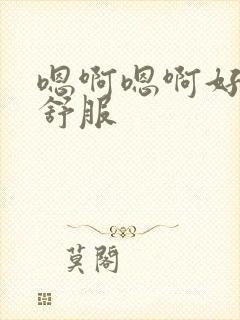 嗯啊嗯啊好
舒服
莫阁